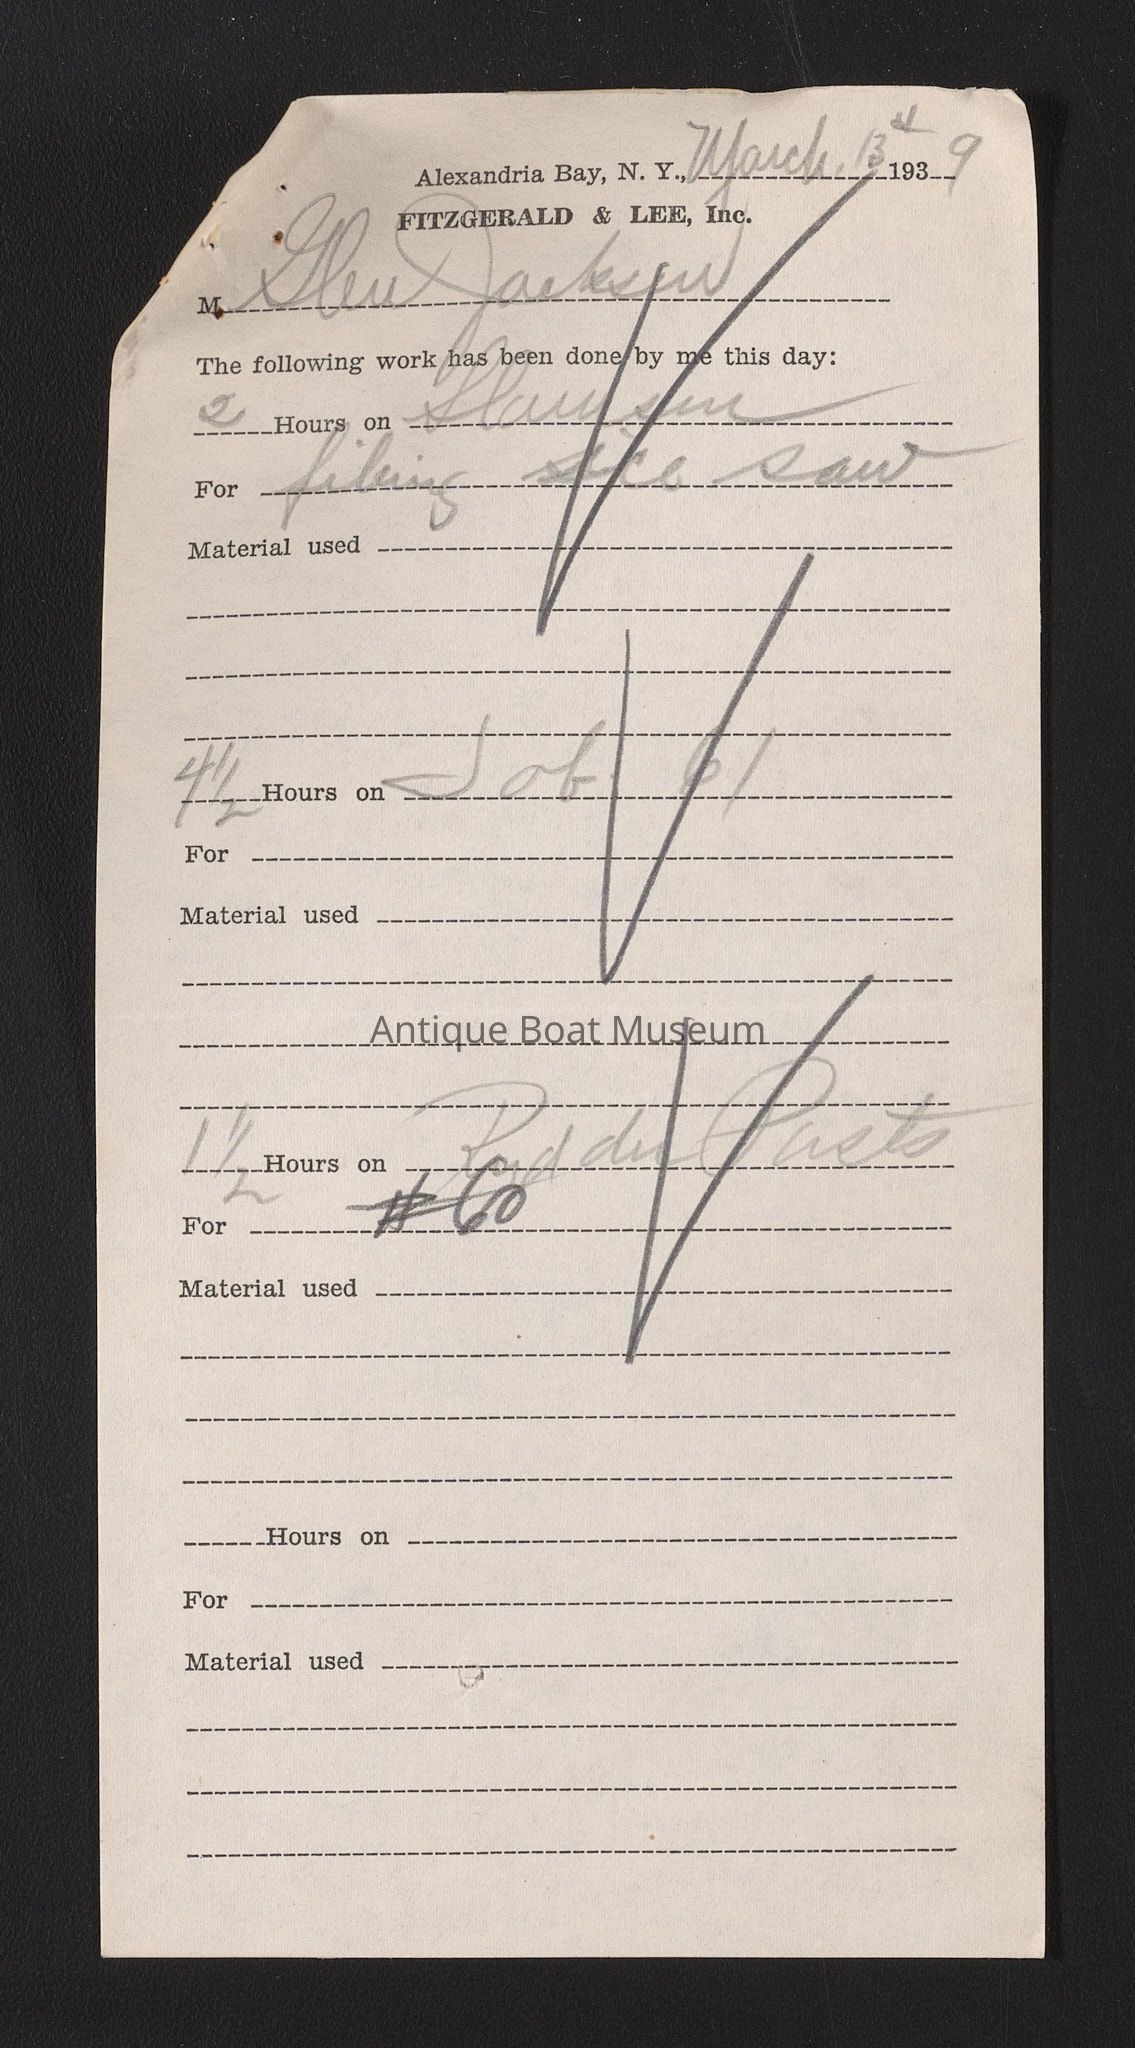 Alexandria Bay, N. Y., March 13th 1939
FITZGERALD & LEE, Inc.
M Glen Jackson
The following work has been done by me this day:
2 Hours on
For filing ice saw
Material used
4 1/2 Hours on Job 61
For
Material used
Antique Boat Museum
1 1/2 Hours on Rudder Posts
For #60
Material used
Hours on
For
Material used